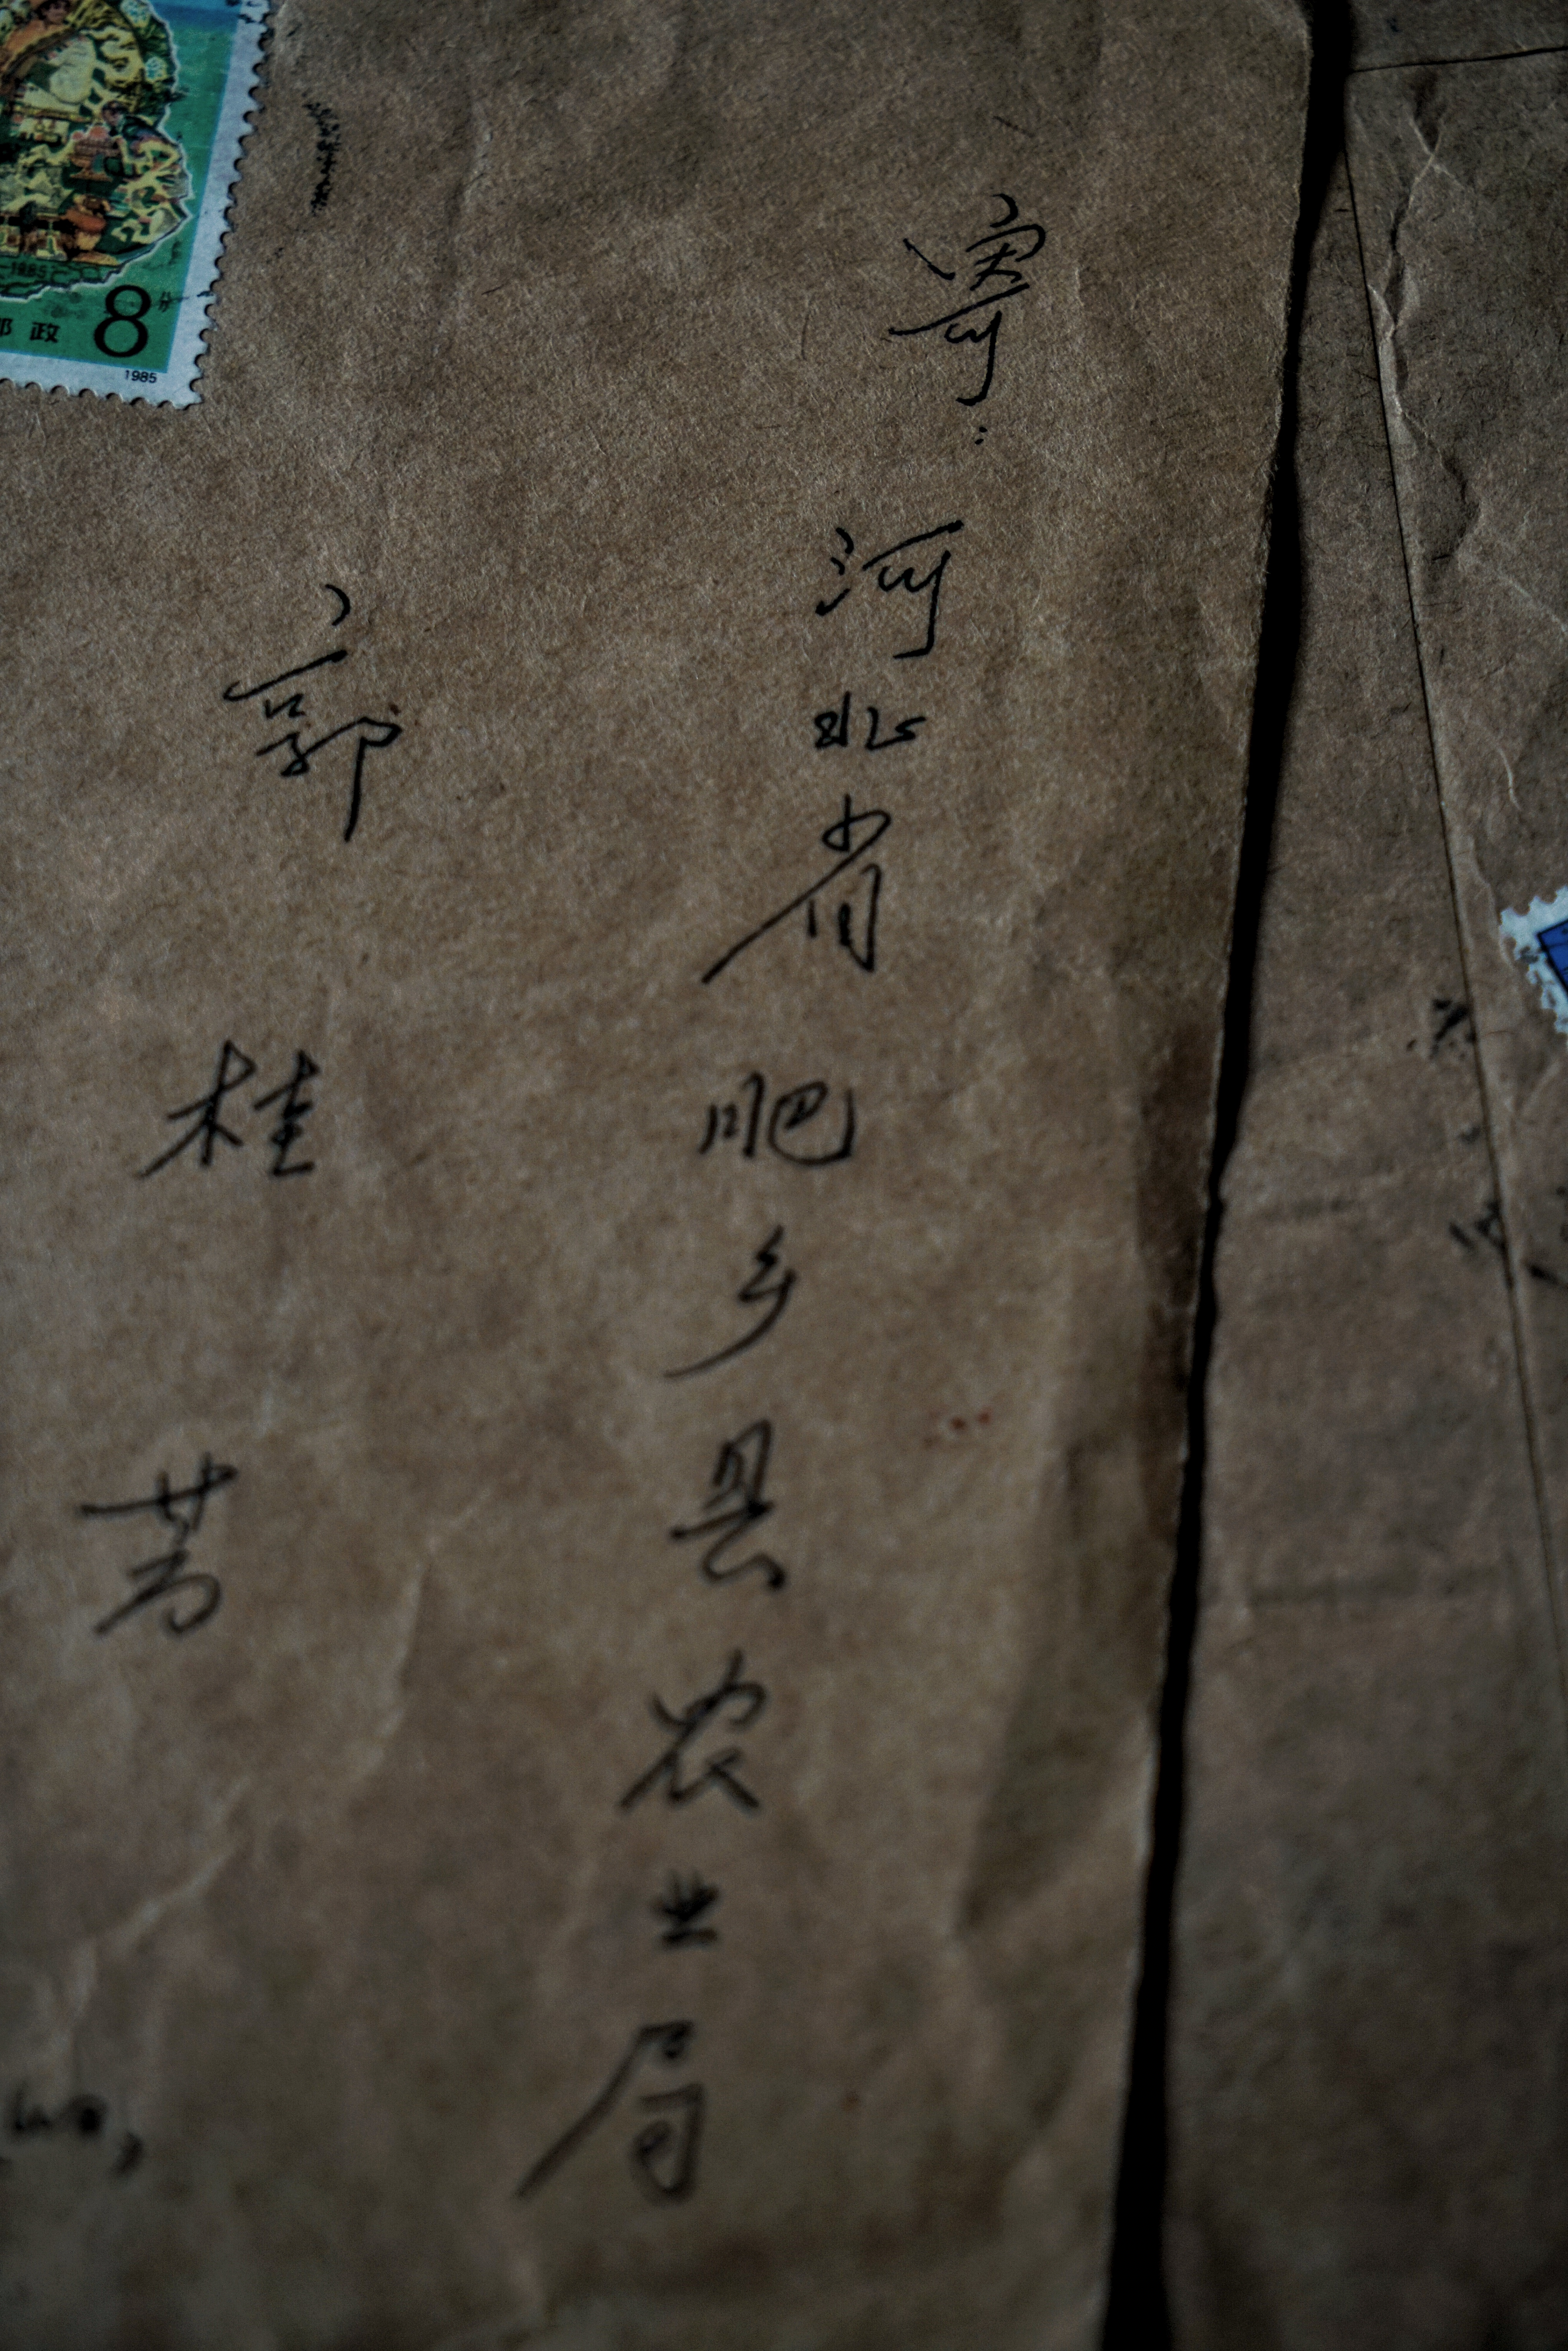 寄:
河北省肥乡县农业局
郭桂芳
邮政
8分
1985
1985